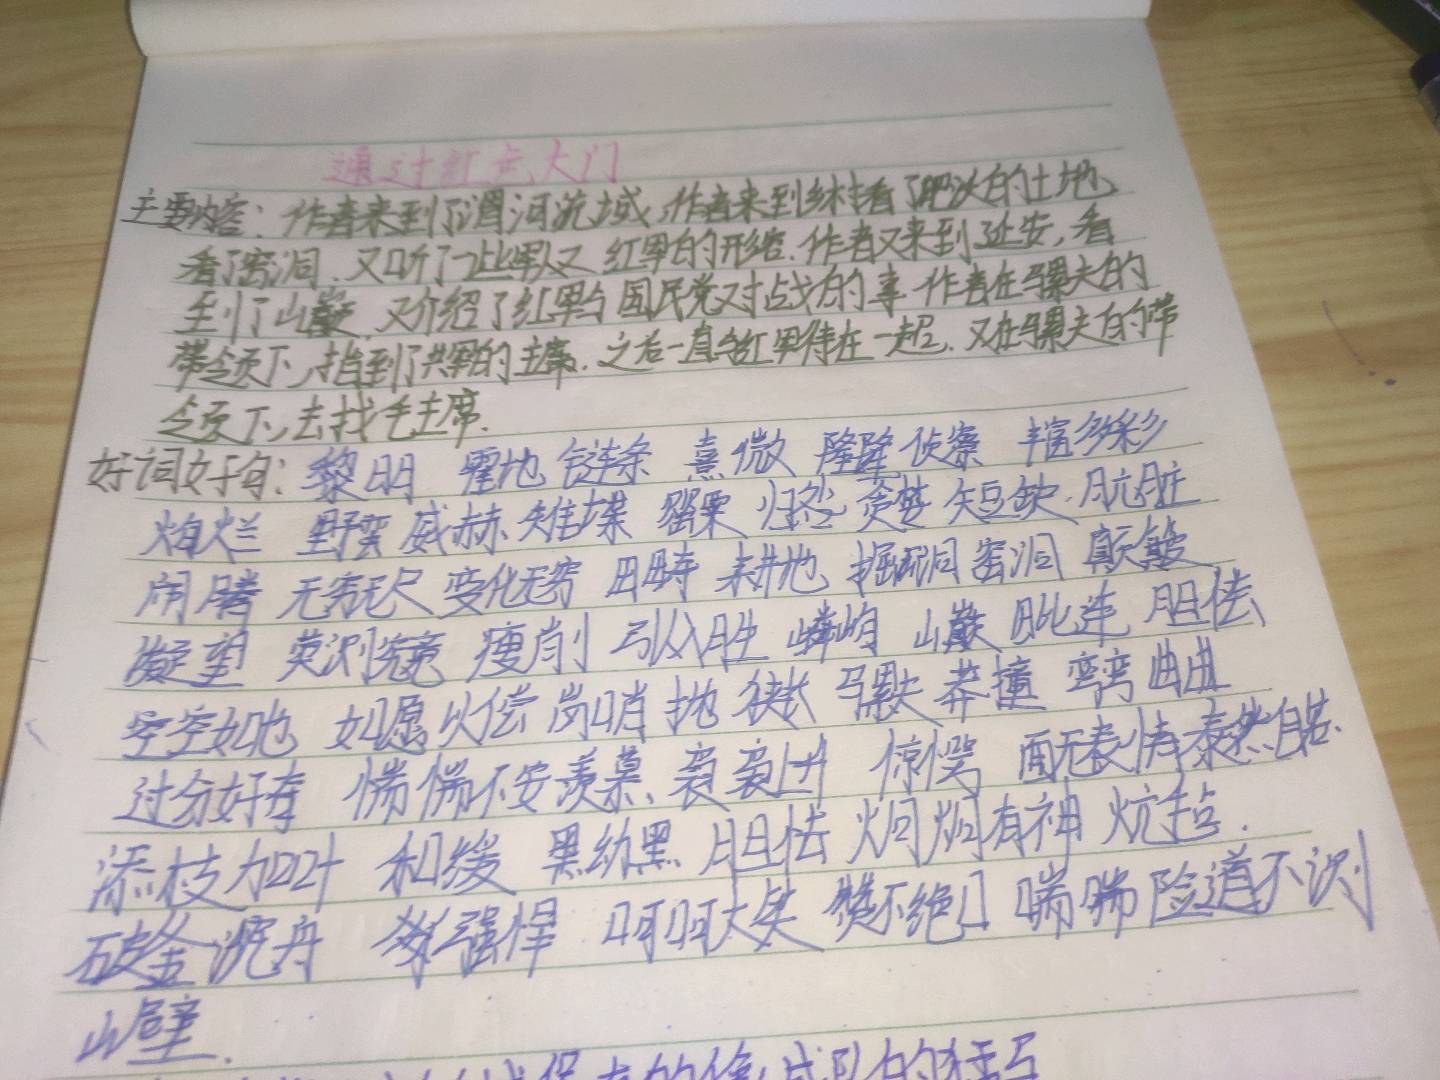 通过红色大门
主要内容：作者来到了渭河流域,作者来到乡村看了肥沃的土地、
看了窑洞、又听了一些军队又 红军的形络.作者又来到延安,看
到了山巅.又介绍了红军与国民党对战的事 作者在骡夫的
带领下,指到了共军的主席.之后一直与红军待在一起.又在骡夫的带
领下,去找毛主席.
好词好句：黎明 霍地 链条 熹微 隆隆 侦察 丰富多彩
灿烂 野蛮 威赫 雉堞 罂粟 归咎 贪婪 短缺 肮脏
闹腾 无穷无尽 变化无穷 田畴 耕地 掘洞 窑洞 颠簸
凝望 莫测究竟 瘦削 引人入胜 嶙峋 山巅 毗连 胆怯
空空如也 如愿以偿 岗哨 抛 狭长 骡夫 莽撞 弯弯曲曲
过分好奇 惴惴不安 羡慕、袅袅上升 惊愕 面无表情 泰然自若.
添枝加叶 和缓 黑黝黝 胆怯 炯炯有神 炕毡.
破釜沉舟 强悍 呵呵大笑 赞不绝口 喘喘 险道不测
山壁.